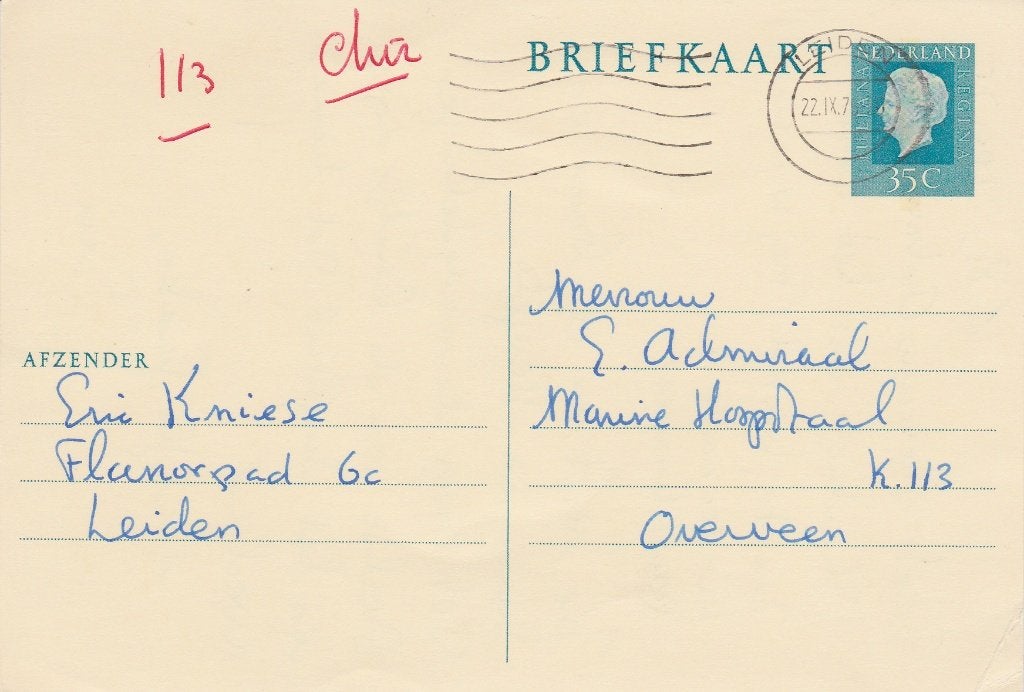 113
Chir
BRIEFKAART
LEIDEN
22.IX.7
NEDERLAND
JULIANA
REGINA
35 C
AFZENDER
Eric Kniese
Flanorpad 6c
Leiden
Mevrouw
E. Admiraal
Marine Hospitaal
K.113
Overveen